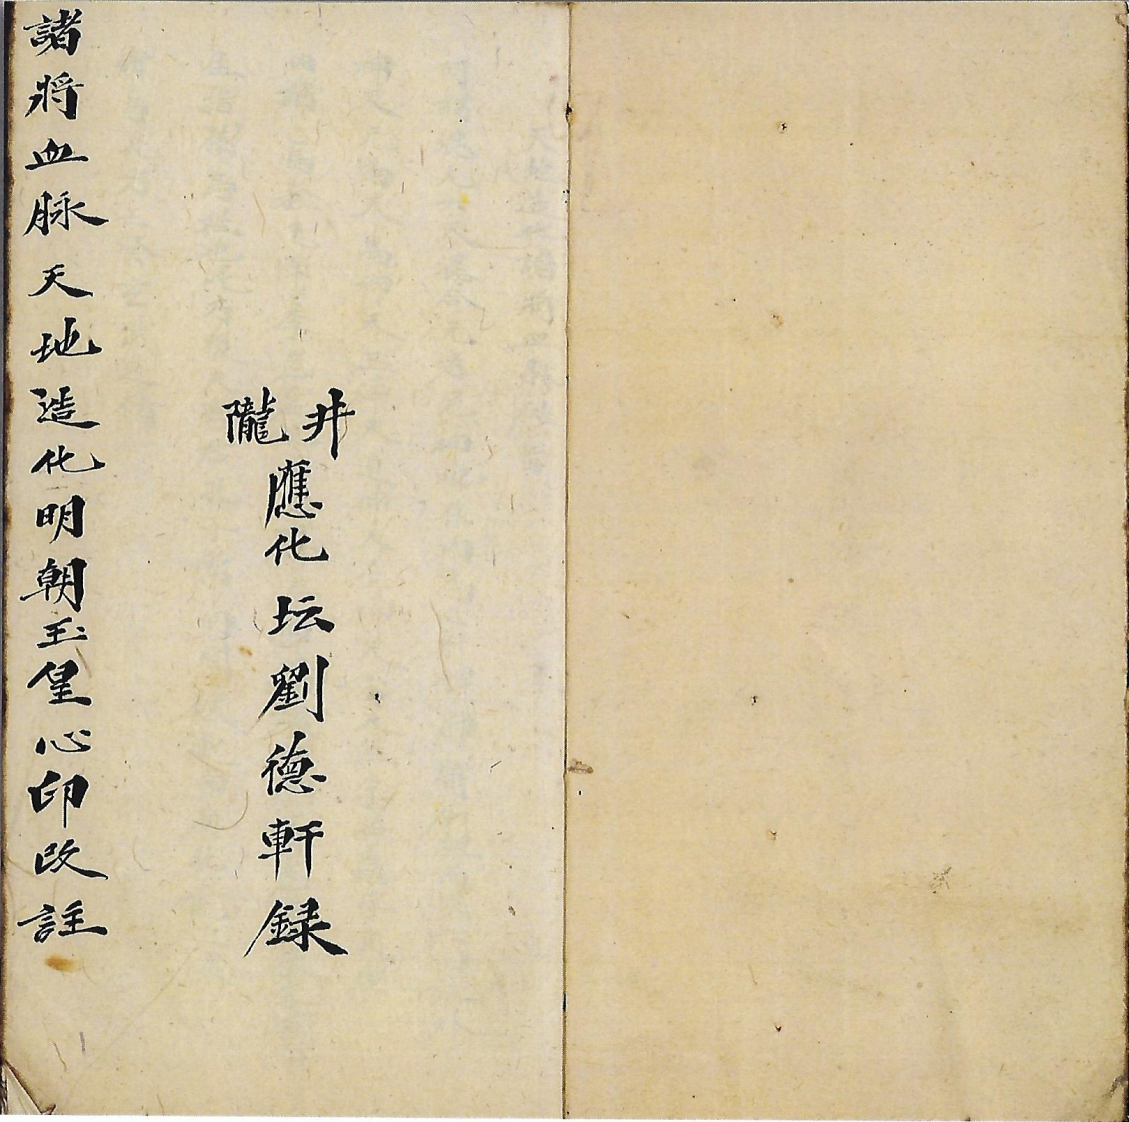 井隴應化坛劉德軒録
諸将血脉天地造化明朝玉皇心印改註